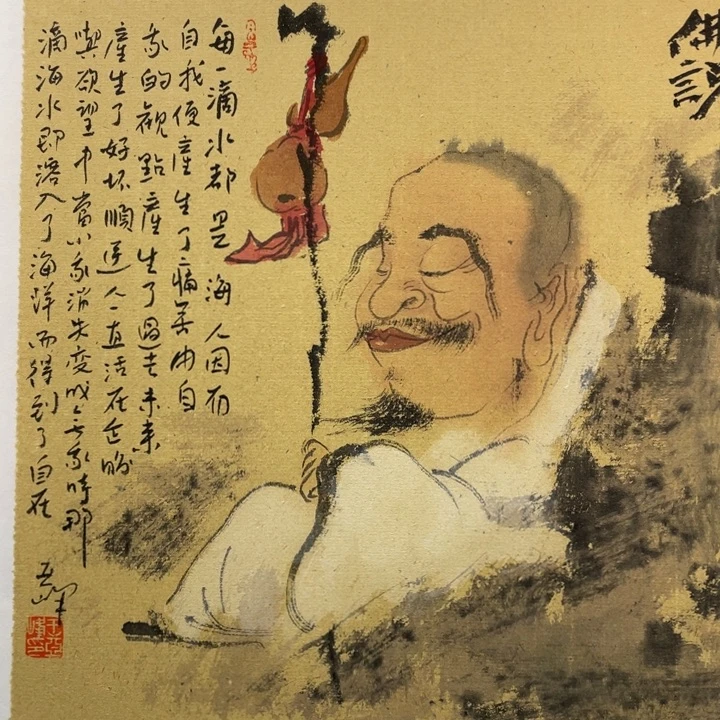 佛說
每一滴水都是海人因有
自我便產生了痛苦由自
我的觀點產生了過去未來
產生了好坏順逆人一直活在迷
與欲望中當小我消失变成无我時那
滴海水即溶入了海洋而得到了自在